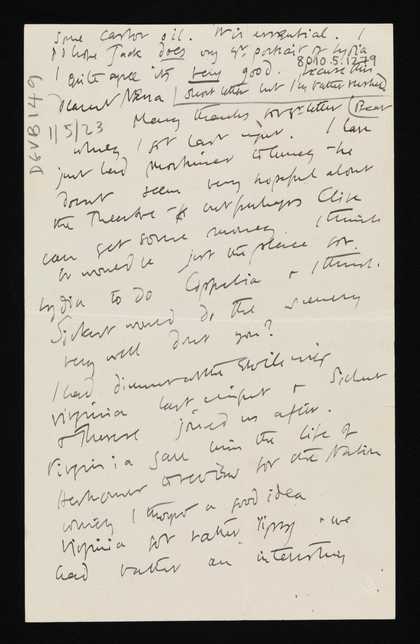 some castor oil. It is essential. I
I do hope Jack does buy yr. portrait of Lydia
I quite agree its very good.
8010.5.1279
Dearest Nessa I short letter but I'm rather rushed
1/5/23
DGVB419
Many thanks for yr. letter
which I got last night. I have
just had Mortimer to lunch - he
doesnt seem very hopeful about
the Theatre - but perhaps Clive
can get some money. I think
it would be just the place for
Lydia to do Coppelia & I think
Sickert would do the scenery
very well dont you?
I had dinner at the Etoile with
Virginia last night & Sickert
& Therese joined us after.
Virginia gave him the life of
Herkomer to review for the Nation
which I thought a good idea
Virginia got rather tipsy & we
had rather an interesting